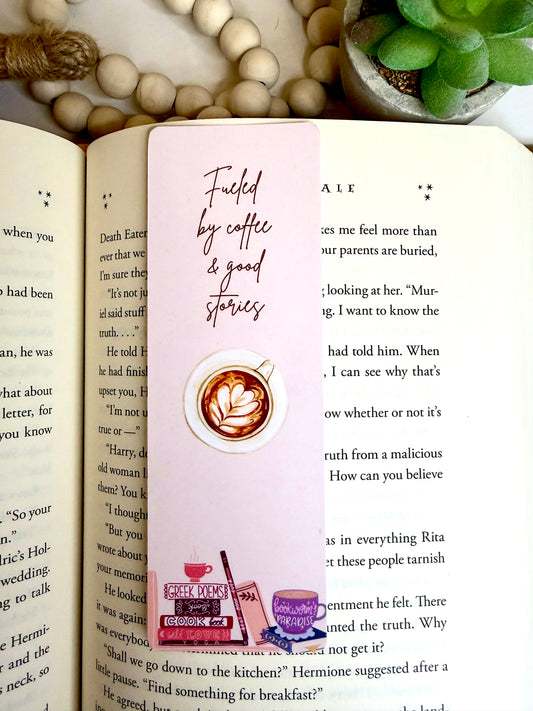 Fueled
by coffee
& good
stories
GREEK POEMS
COOK
YOGA
bookworm's
PARADISE
ALE
when you
o had been
an, he was
what about
letter, for
you know
"So your
n."
dric's Hol-
wedding.
ng to talk
Hermi-
er and the
s neck, so
Death Eater
ever that we
I'm sure they
"It's not ju
iel said stuff
truth. . . ."
He told H
he had finish
upset you, H
"I'm not u
true or —"
"Harry, do
old woman li
them? You k
"I thought
"But you
wrote about y
your memori
He looked
it was again:
was everybody
"Shall we go down to the kitchen?" Hermione suggested after a
little pause. "Find something for breakfast?"
He agreed, but
kes me feel more than
our parents are buried,
g looking at her. "Mur-
ng. I want to know the
had told him. When
, I can see why that's
ow whether or not it's
ruth from a malicious
How can you believe
as in everything Rita
et these people tarnish
entment he felt. There
anted the truth. Why
not get it?